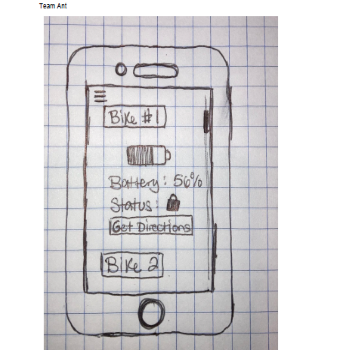 Team Ant
Bike #1
Battery: 56%
Status:
Get Directions
Bike 2